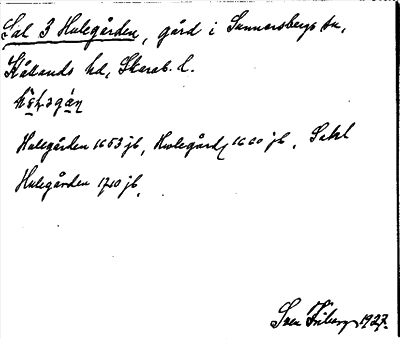 Sal 3 Hulegården, gård i Sunnersbergs sn,
Kållands hd, Skarab. l.
Hulegården 1653 jb, Hwlegård 1660 jb, Sahl
Hulegården 1710 jb,
Sven Friberg 1927.